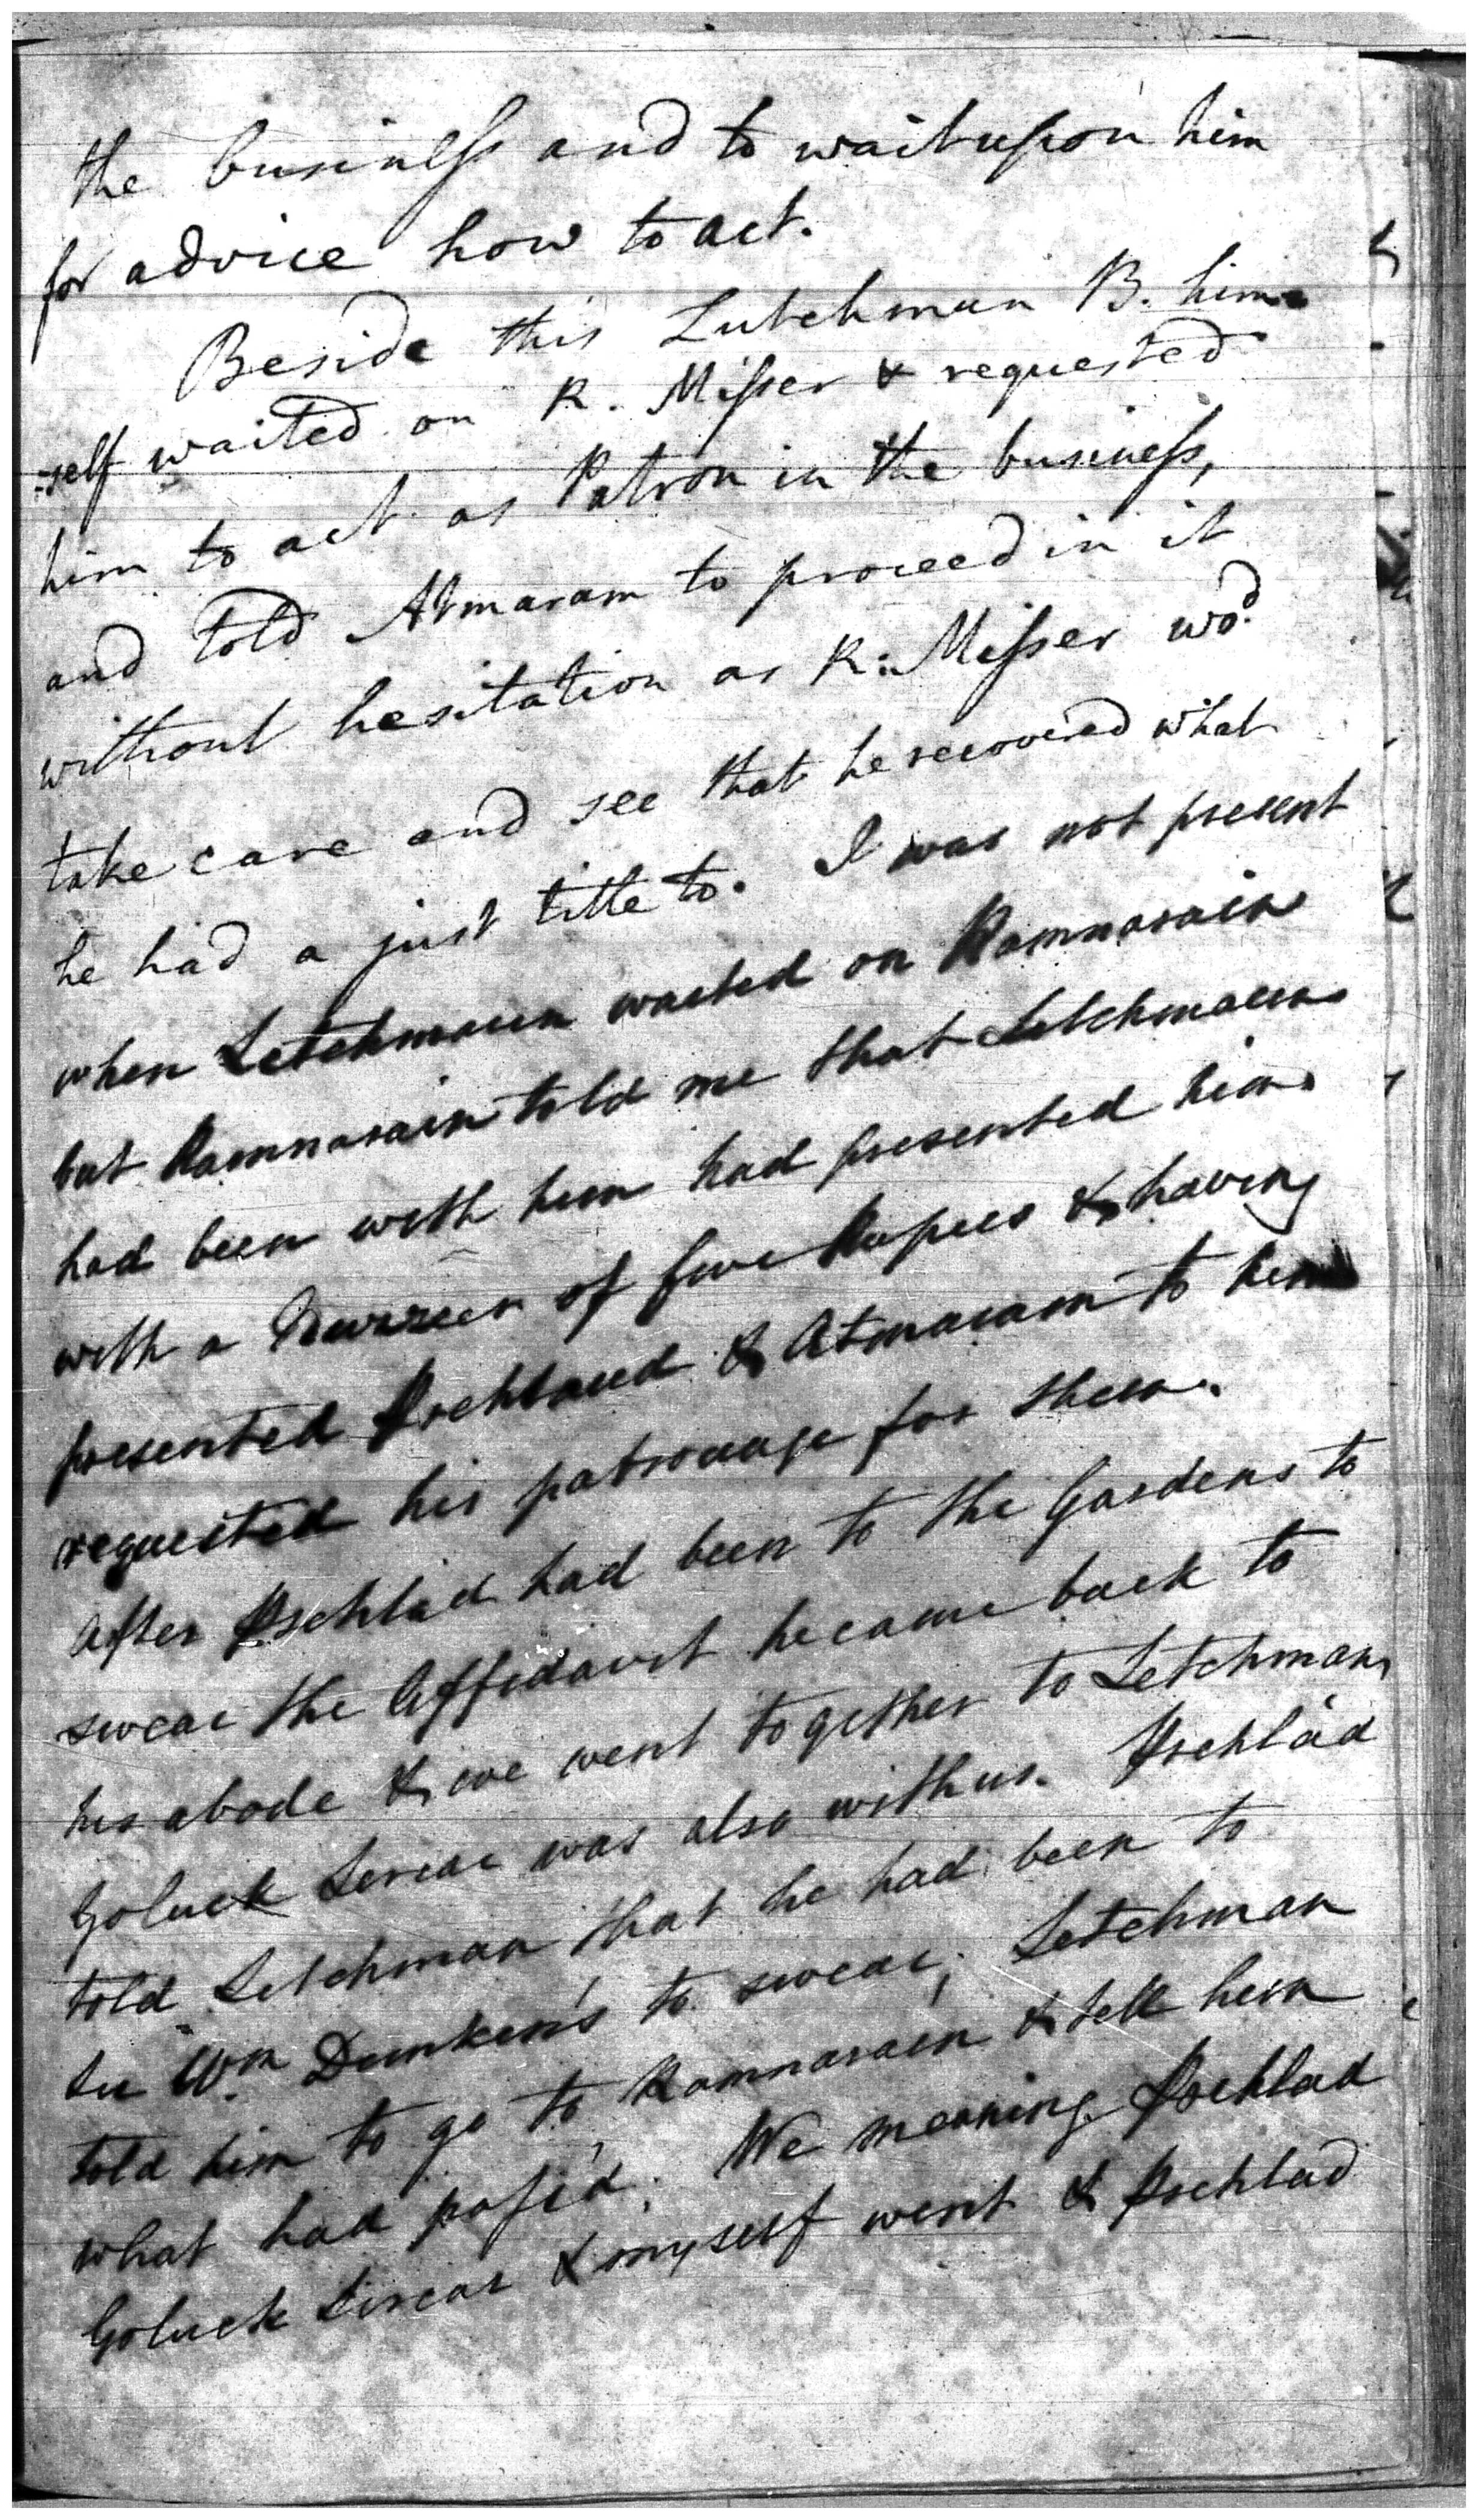 the businesſs and to wait upon him
for advice how to act.
Beside this Lutchman B. him=
=self waited on R. Miſser & requested
him to act as Patron in the busineſs,
and told Atmaram to proceed in it
without hesitation as R: Miſser wod
take care and see that he recovered what
he had a just title to. I was not present
when Letchmaun waited on Ramnarain
but Ramnarain told me that Letchmaun
had been with him had presented him
with a Nuzzer of five Rupees & having
presented & Atmaram to him
requested his patronage for them.
After had been to the Gardens to
swear the Affidavit he came back to
his abode & we went together to Letchman,
Goluck Sircar was also with us.
told Letchman that he had been to
Sir Wm Dunken's to swear, Letchman
told him to go to Ramnarain & tell him
what had paſs'd. We meaning
Goluck Sircar & myself went &